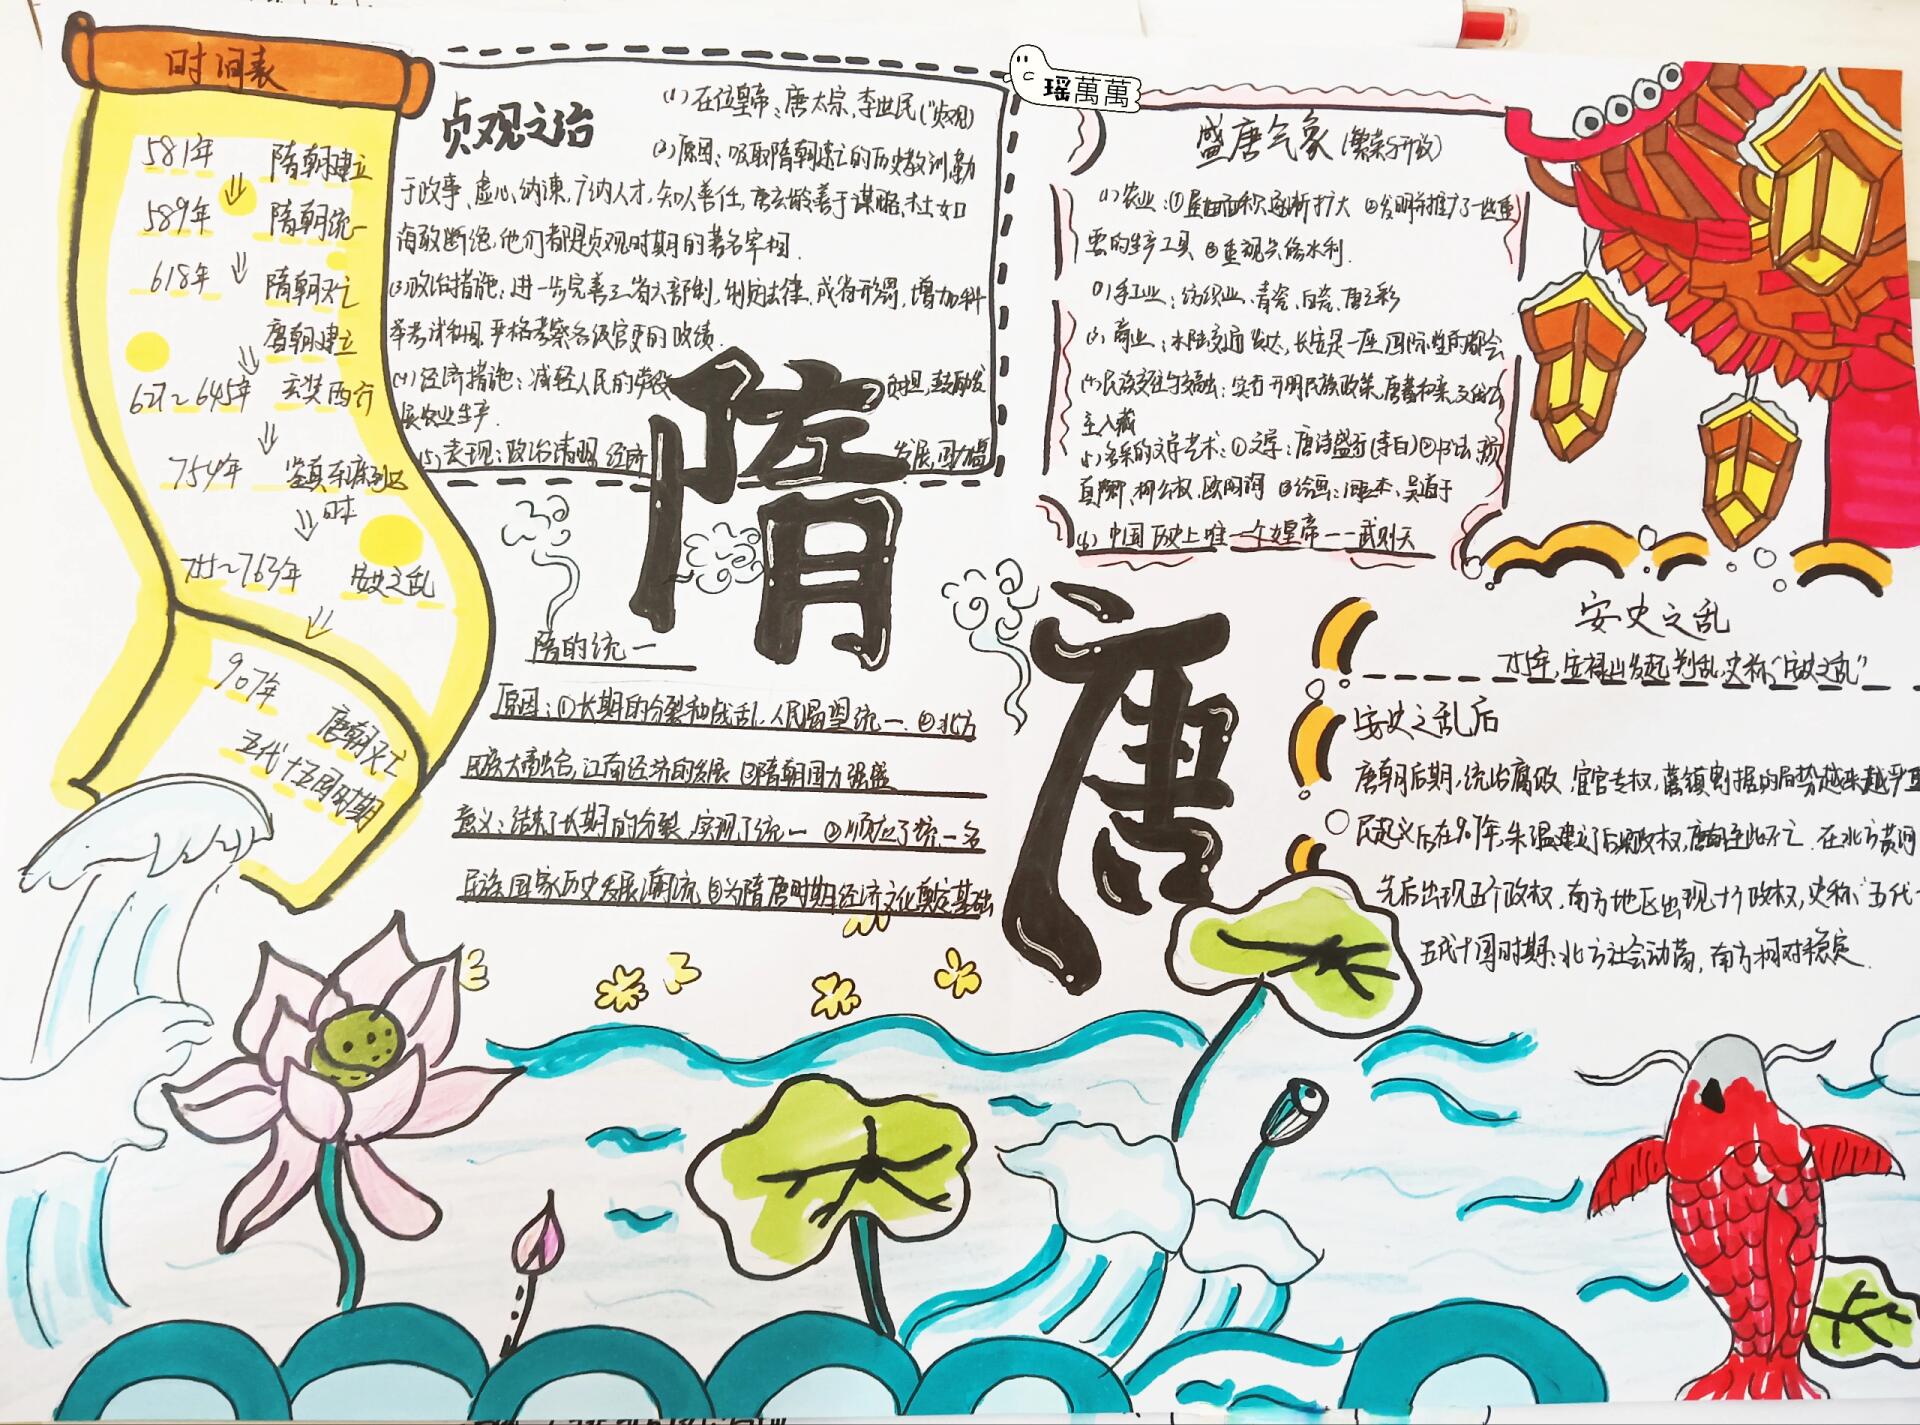 时间表
581年 隋朝建立
589年 隋朝统一
618年 隋朝灭亡
唐朝建立
627~645年 玄奘西行
754年 鉴真东渡到达
日本
755~763年 安史之乱
907年 唐朝灭亡
五代十国时期
贞观之治
(1)在位皇帝:唐太宗,李世民("贞观)
(2)原因:吸取隋朝速亡的历史教训,勤
于政事、虚心纳谏,广纳人才,知人善任,房玄龄善于谋略,杜如
晦敢断绝,他们都是贞观时期的著名宰相.
(3)政治措施:进一步完善三省六部制,制定法律,减省刑罚,增加科
举考试科目,严格考察各级官吏的政绩.
(4)经济措施:减轻人民的劳役 负担,鼓励发
展农业生产.
(5)表现:政治清明,经济 发展,国力
隋
唐
隋的统一
原因:①长期的分裂和战乱,人民渴望统一.②北方
民族大融合,江南经济的发展 ③隋朝国力强盛
意义:结束了长期的分裂,实现了统一 ②顺应了统一多
民族国家历史发展潮流,③为隋唐时期经济文化奠定基础
瑶萬萬
盛唐气象(繁荣与开放)
(1)农业:①垦田面积逐渐扩大 ②发明并推广了一些重
要的生产工具 ③重视兴修水利.
(2)手工业:纺织业、青瓷、白瓷、唐三彩
(3)商业:水陆交通发达,长安是一座国际性的都会
(4)民族交往与交融:实行开明民族政策,唐蕃和亲,文成公
主入藏
(5)多彩的文学艺术:①文学:唐诗盛行(李白)②书法:颜
真卿、柳公权、欧阳询 ③绘画:阎立本、吴道子
(6)中国历史上唯一个女皇帝——武则天
安史之乱
755年,安禄山发起判乱,史称"安史之乱"
安史之乱后
唐朝后期,统治腐败,宦官专权,藩镇割据的局势越来越严重
民起义后在907年,朱温建立了后梁政权,唐朝至此灭亡.在北方黄河
先后出现五个政权,南方地区出现十个政权,史称"五代十
五代十国时期:北方社会动荡,南方相对稳定.